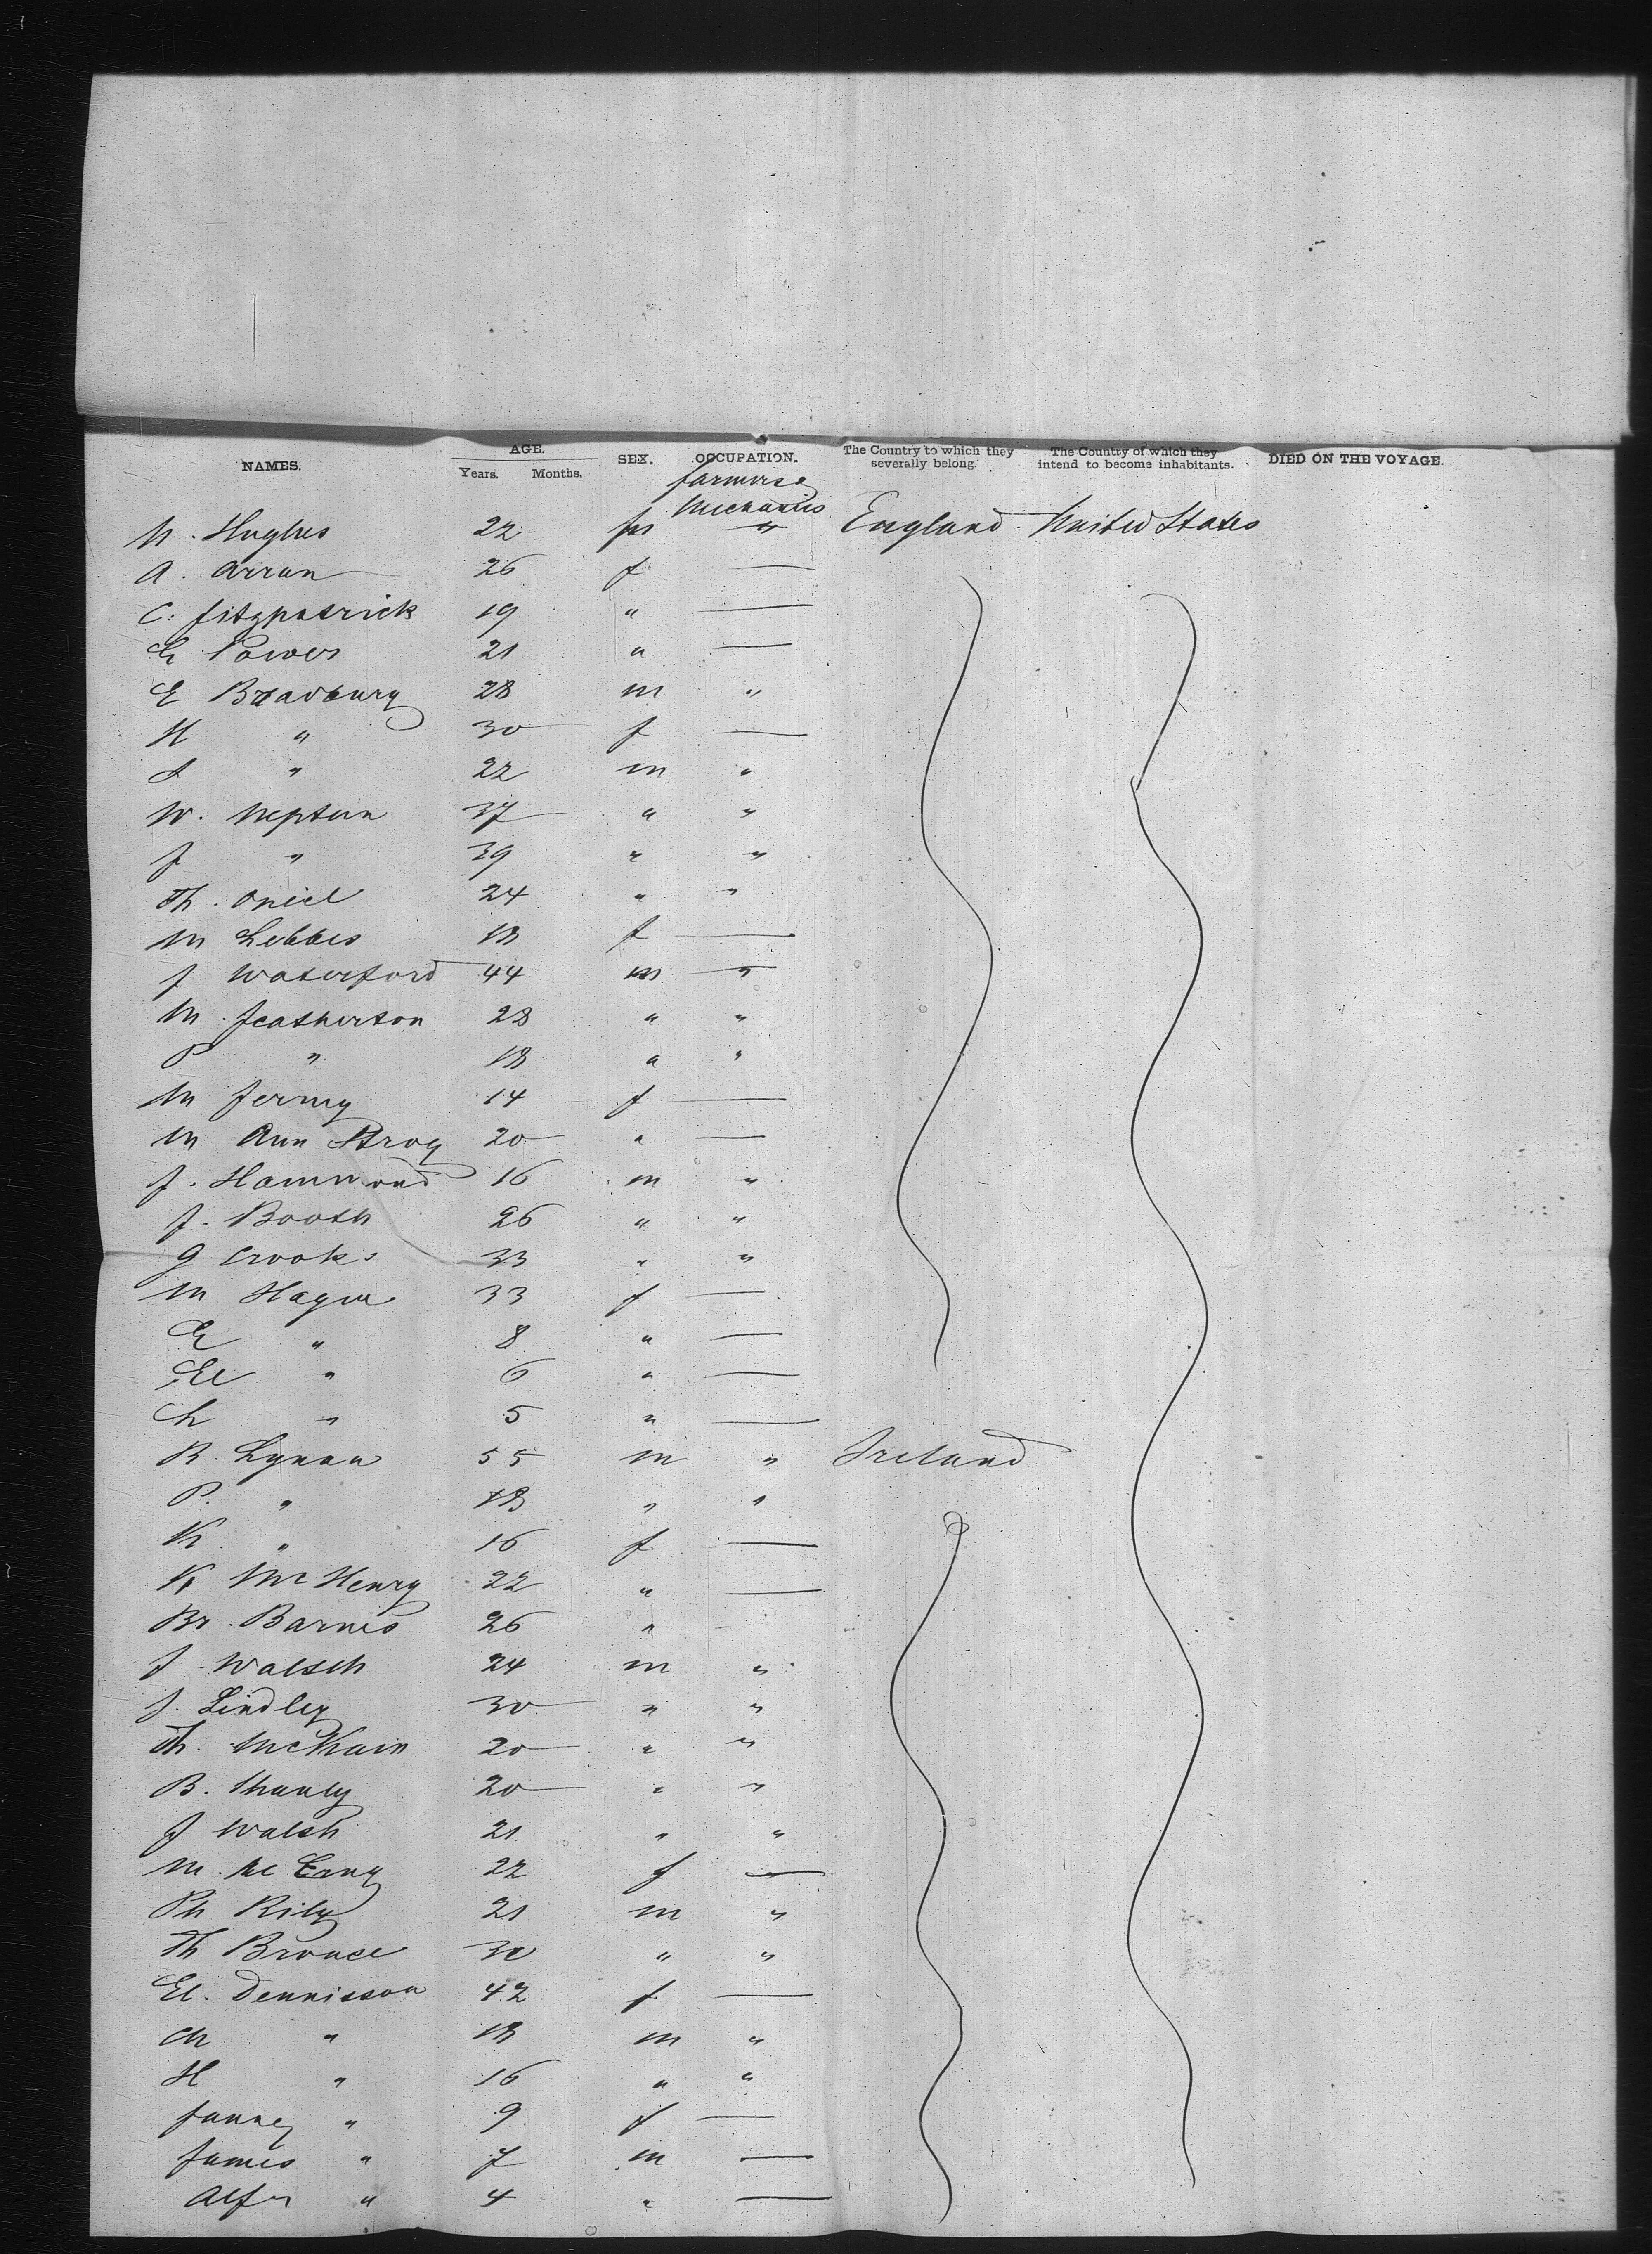 NAMES. AGE. Years. Months. SEX. OCCUPATION. The Country to which they severally belong. The Country of which they intend to become inhabitants. DIED ON THE VOYAGE.
farmers &
Mechanics
M. Hughes 22 m " England United States
A. Arran 26 f —
C. Fitzpatrick 19 " —
E Power 21 " —
E Bradbury 28 m "
H " 30 f —
J " 22 m "
W. Neptun 37 " "
J " 39 " "
Th. Oniel 24 " "
M Lebbes 18 f —
J Waterford 44 m "
M. Featherton 28 " "
P " 18 " "
M Ferney 14 f —
M Ann Stroy 20 " —
J. Hammond 16 m "
J. Booth 26 " "
G Crooks 33 " "
M Hague 33 f —
E " 8 " —
El " 6 " —
Ch " 5 " —
R. Lynan 55 m " Ireland
P. " 18 " "
K " 16 f —
K McHenry 22 " —
Br. Barnes 26 "
J Walsch 24 m "
J. Lindley 30 " "
Th. McKain 20 " "
B. Shanly 20 " "
J Walsh 21 " "
M. Mc 22 f —
Ph Rily 21 m "
Th Brouse 30 " "
El. Dennisson 42 f —
Ch " 18 m "
H " 16 " "
Fanney " 9 f —
James " 7 m —
Alfr " 4 " —